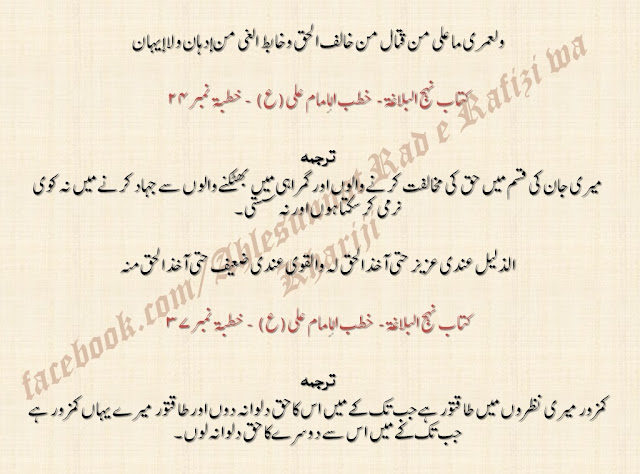 ولعمری ما علی من قتال من خالف الحق وخابط الغی من إدهان ولا إیهان
کتاب نهج البلاغة - خطب الإمام علی (ع) - خطبة نمبر ۲۴
ترجمہ
میری جان کی قسم میں حق کی مخالفت کرنے والوں اور گمراہی میں بھٹکنے والوں سے جہاد کرنے میں نہ کوی
نرمی کر سکتا ہوں اور نہ سستی۔
الذلیل عندی عزیز حتی آخذ الحق له والقوی عندی ضعیف حتی آخذ الحق منه
کتاب نهج البلاغة - خطب الإمام علی (ع) - خطبة نمبر ۳۷
ترجمہ
کمزور میری نظروں میں طاقتور ہے جب تک کے میں اس کا حق دلوا نہ دوں اور طاقتور میرے یہاں کمزور ہے
جب تک کے میں اس سے دوسرے کا حق دلوا نہ لوں۔
facebook.com/Ahlesunnat Rad e Rafizi wa
Khariji